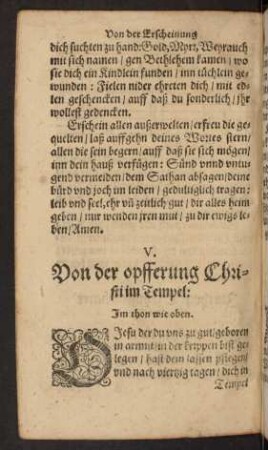 Von der Erscheinung
dich suchten zu hand: Gold, Myrr, Weyrauch
mit sich namen / gen Bethlehem kamen / wo
sie dich ein Kindlein funden / inn tüchlein ge-
wunden: Fielen nider ehreten dich / mit ed-
len geschencken / auff daß du sonderlich / jhr
wollest gedencken.
Erschein allen außerwelten / erfreu die ge-
quelten / laß auffgehn deines Wortes stern /
allen die sein begern / auff daß sie sich mögen /
inn dein hauß verfügen: Sünd vnnd vntu-
gend vermeiden / dem Sathan absagen / deine
bürd vnd joch im leiden / gedultiglich tragen:
leib vnd seel, ehr vñ zeitlich gut / dir alles heim
geben / nur wenden jren mut / zu dir ewigs le-
ben / Amen.
V.
Von der opfferung Chri-
sti im Tempel:
Im thon wie oben.
O Jesu der du vns zu gut / geboren
in armut / in der krippen bist ge-
legen / hast dein lassen pflegen /
vnd nach viertzig tagen / dich in
Tempel